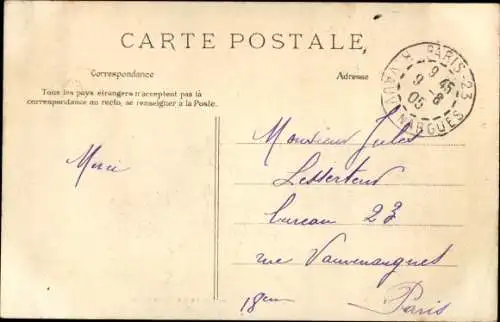 CARTE POSTALE
Correspondance
Adresse
Tous les pays étrangers n'acceptent pas la
correspondance au recto, se renseigner à la Poste.
PARIS-23
R. VAUVENARGUES
9 45
9 - 8
05
Merci
Monsieur Jules
Lesserteur
bureau 23
rue Vauvenargues
18em
Paris